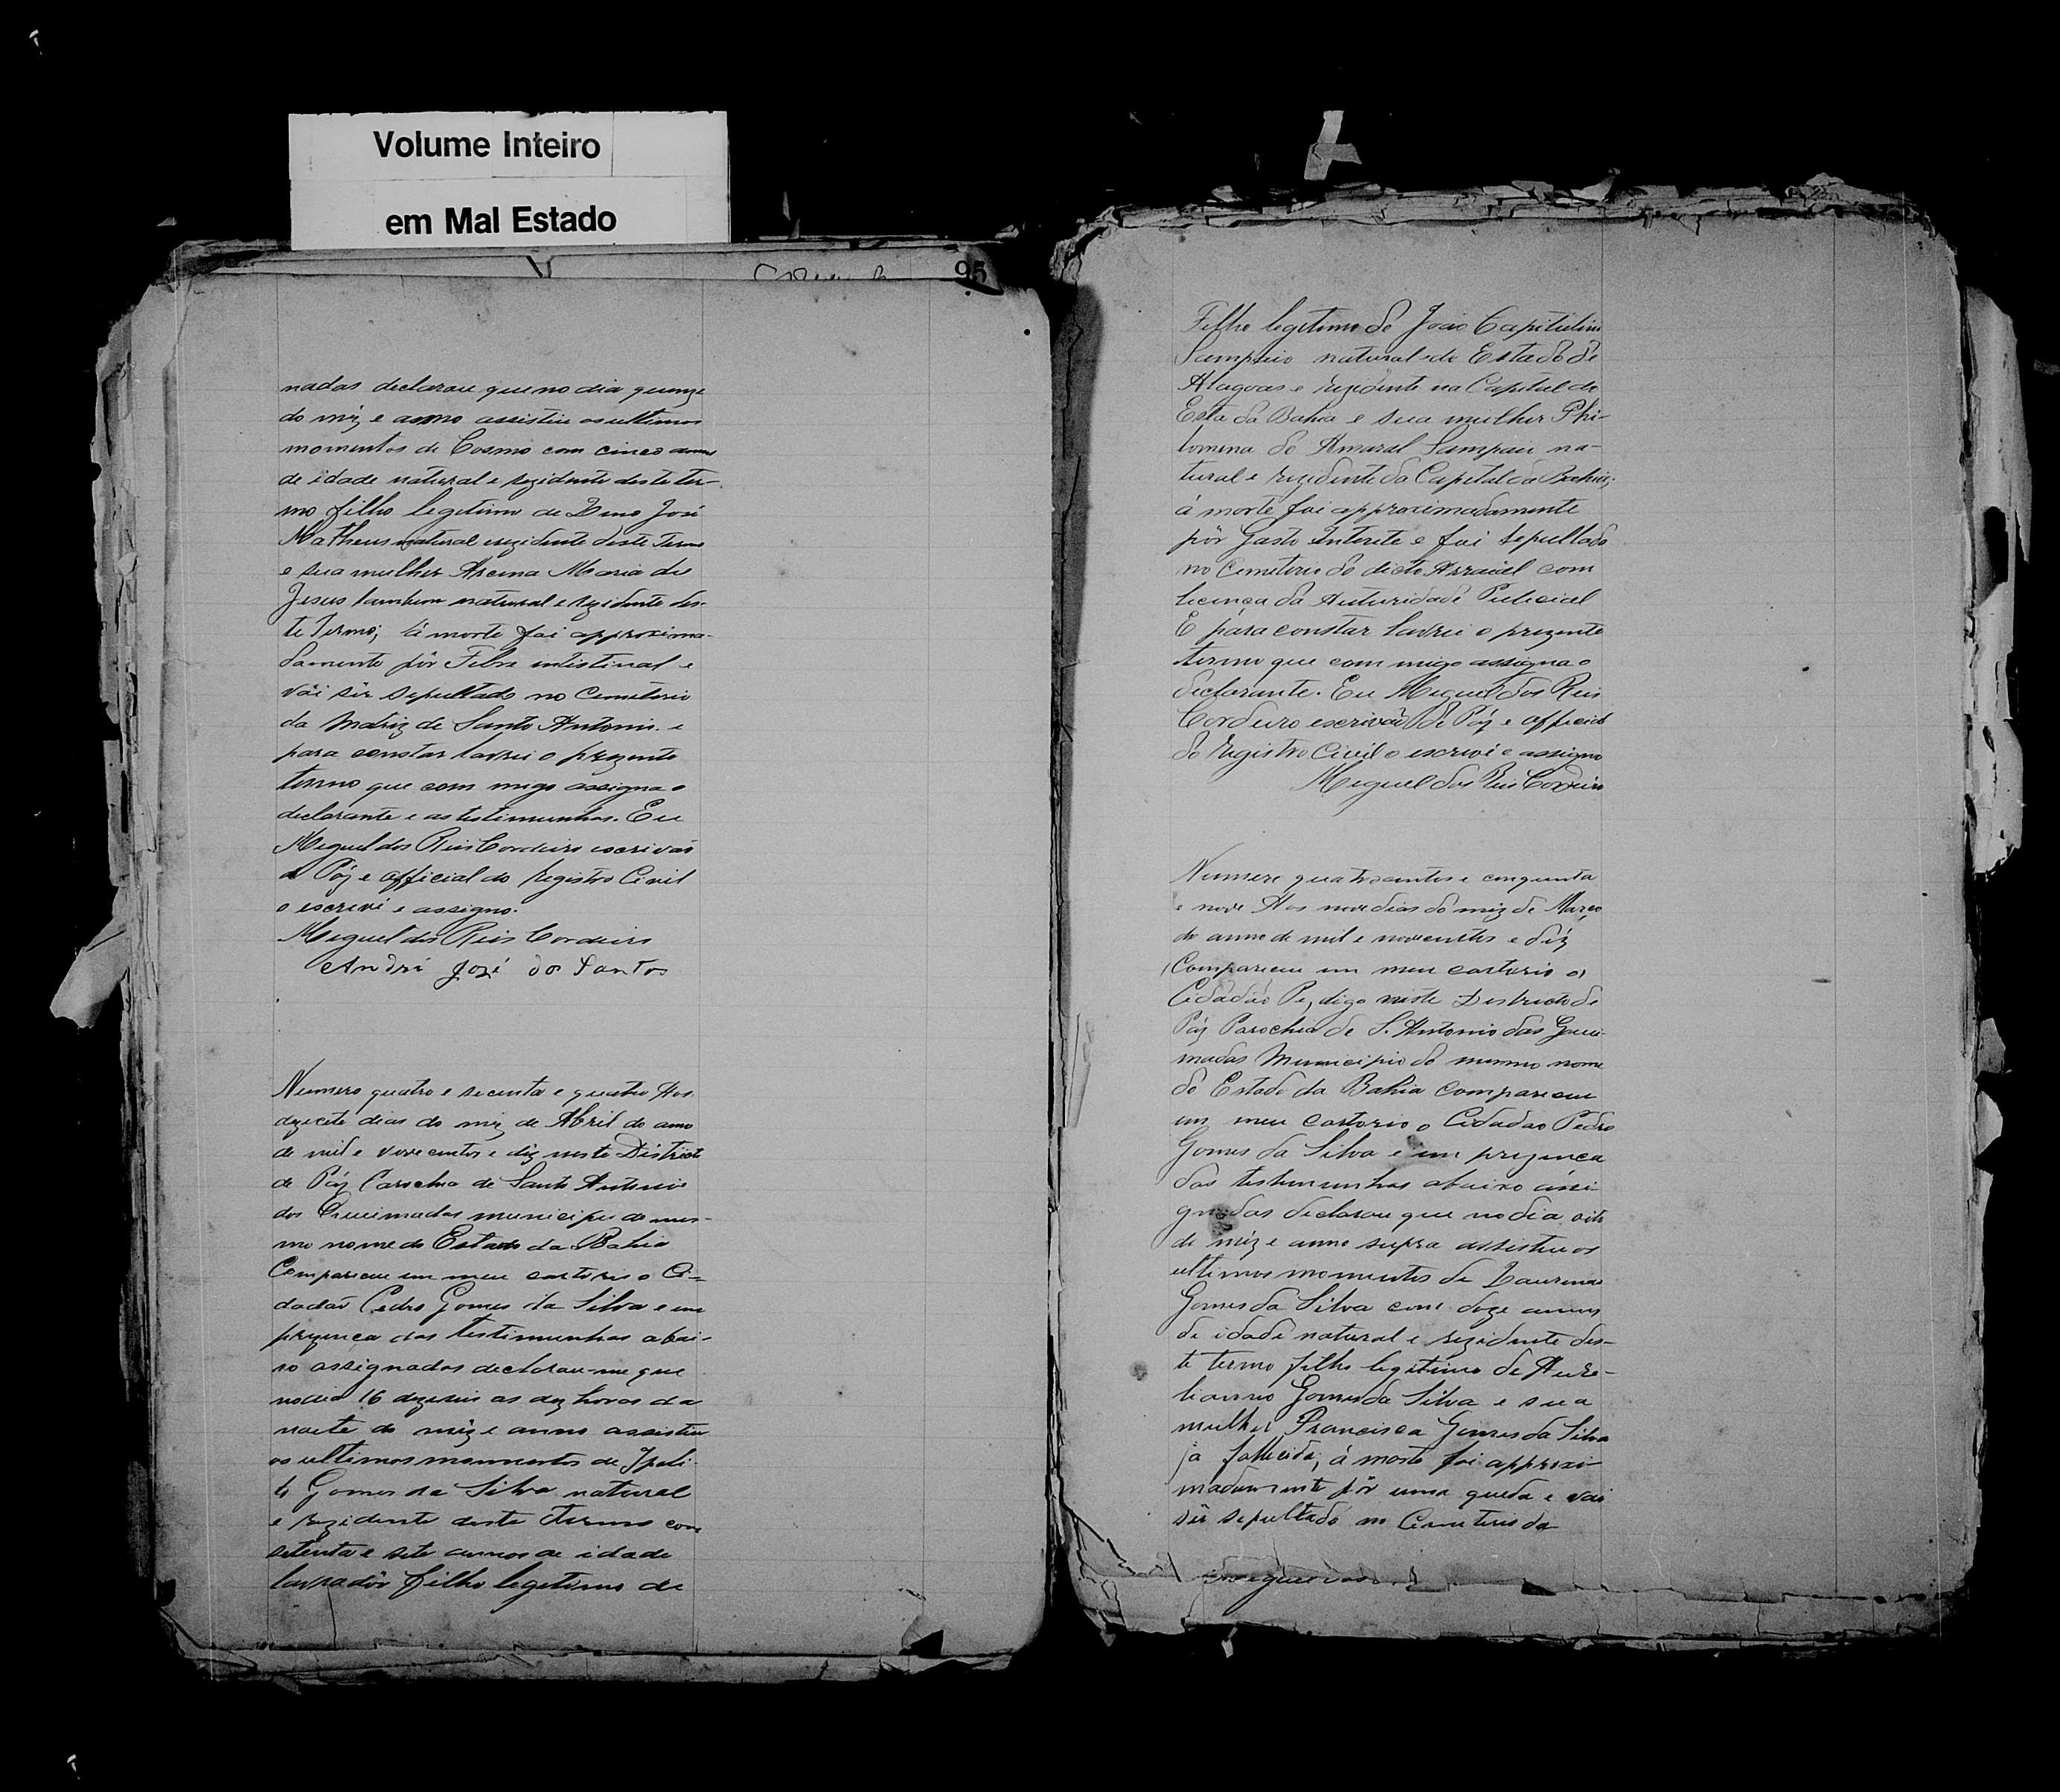 Volume Inteiro
em Mal Estado
95
nadas declarou que no dia quinze
do mez e anno assistiu os ultimos
momentos de Cosmo com cinco annos
de idade natural e rezidente deste ter-
mo filho legitimo de José
Matheus natural e rezidente deste Termo
e sua mulher Maria de
Jesus tambem natural e rezidente des-
te Termo; á morte foi approxima-
damente pôr Febre intistinal e
vai sêr sepultado no Cemiterio
da Matriz de Santo Antonio. e
para constar lavrei o prezente
termo que com migo assigna o
declarante e as testimunhas. Eu
Miguel dos Reis Cordeiro escrivão
de Páz e official do Registro Civil
o escrevi e assigno.
Miguel dos Reis Cordeiro
André José dos Santos
Numero quatro e secenta e quatro Aos
dezecete dias do mez de Abril do anno
de mil e novecentos e déz neste Districto
de Páz Parochia de Santo Antonio
das Queimadas municipio do mes-
mo nome do Estado da Bahia
Compareceu em meu cartorio o Ci-
dadão Pedro Gomes da Silva e em
prezença das testimunhas abai-
xo assignados declarou-me que
no dia 16 dezeseis as dez horas da
noite do mêz e anno assistiu
os ultimos momentos de Ipoli-
to Gomes da Silva natural
e rezidente deste Termo com
setenta e sete annos de idade
lavradôr filho legitimo de
Filho legitimo de João Capitulino
Sampaio natural do Estado de
Alagoas e rezidente na Capital do
Esta da Bahia e sua mulher Phi-
lomena do Amaral Sampaio na-
tural e rezidente da Capital da Bahia;
á morte foi approximadamente
pôr Gasto Interite e foi sepultado
no Cemiterio do dicto Arraial com
licença da Auturidade Pulicial
E para constar lavrei o prezente
termo que com migo assigna o
declarante. Eu Miguel dos Reis
Cordeiro escrivão de Páz e official
do Registro Civil o escrevi e assigno
Miguel dos Reis Cordeiro
Numero quatrocentos e cinquenta
e nove Aos nove dias do mez de Março
do anno de mil e novecentos e déz
Compareceu em meu cartorio o
Cidadão Pe, digo neste Districto de
Páz Parochia de S. Antonio das Quei-
madas Municipio do mesmo nome
do Estado da Bahia compareceu
em meu cartorio o Cidadão Pedro
Gomes da Silva e em prezença
das testimunhas abaixo assi-
gnadas declarou que no dia oito
do mêz e anno supra assistiu os
ultimos momentos de
Gomes da Silva com doze annos
de idade natural e rezidente des-
te termo filho legitimo de Aure-
lianno Gomes da Silva e sua
mulher Francisca Gomes da Silva
já fallecida; á morte foi approxi-
madamente pôr uma queda e vai
sêr sepultado no Cemiterio da